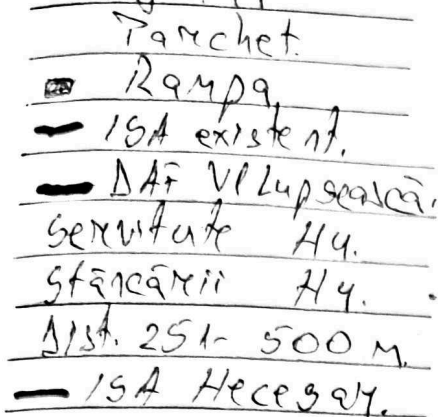 Parchet.
Rampa
ISA existent.
DAF Vl Lupsească.
Servitute Hy.
Stâncării Hy.
Dist. 251- 500 M.
ISA Necesar.